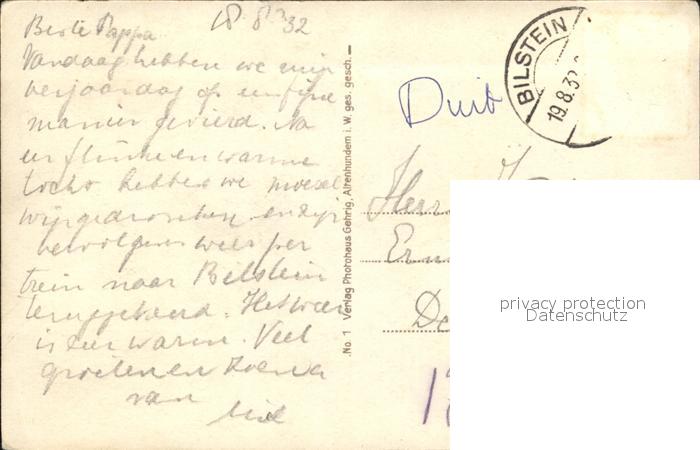 Beste Pappa 18 8 32
Vandaag hebben we mijn
verjaardag op een fijne
manier gevierd. Na
een flinke en warme
tocht hebben we moezel
wijn gedronken en zijn
vervolgens weer per
trein naar Bilstein
teruggekeerd. Het weer
is zeer warm. Veel
groeten en zoenen
van
No. 1 Verlag Photohaus Gehrig, Altenhundem i. W. ges. gesch.
Duit
BILSTEIN
19.8.32
Herr
privacy protection
Datenschutz